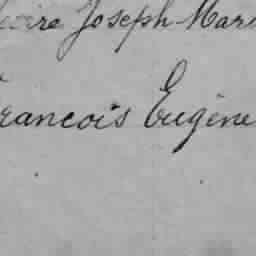 Joseph Mar
rancois Eugène